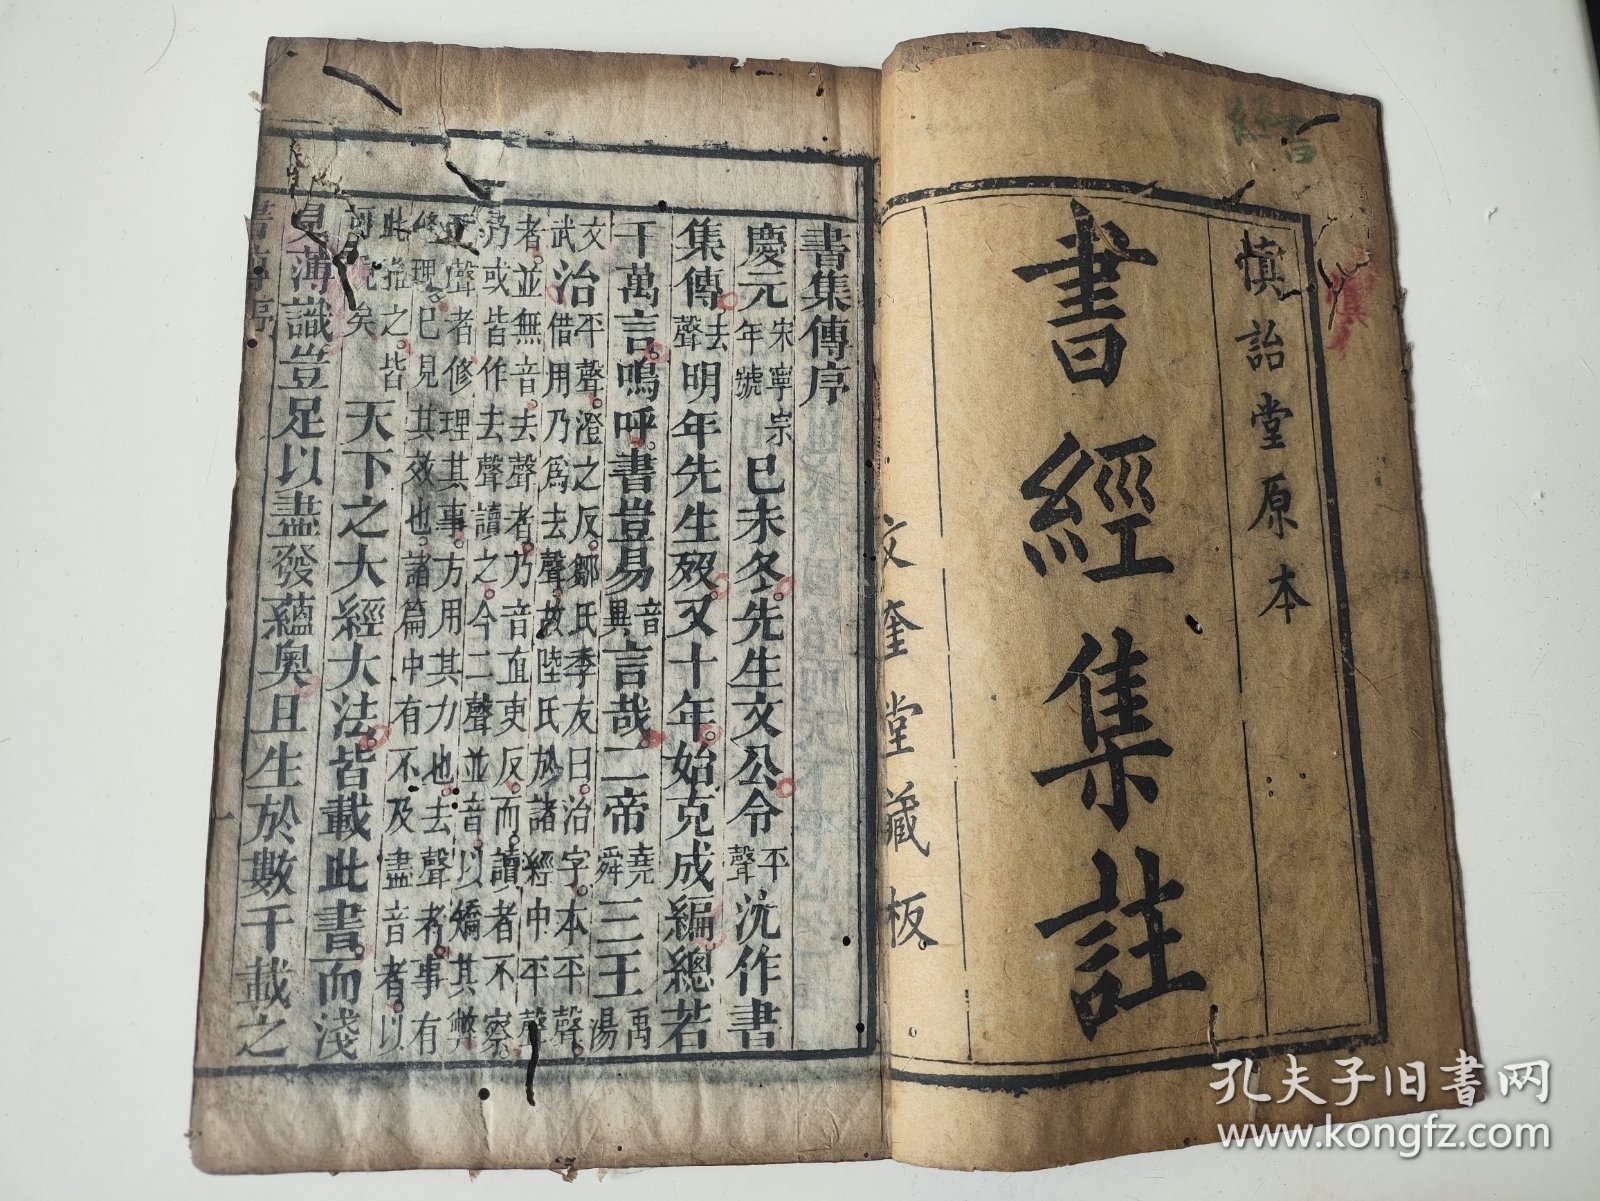 書經
慎詒堂原本
書經集註
文奎堂藏板
書集傳序
慶元宋寧宗年號已未冬先生文公令平聲沈作書
集傳去聲明年先生歿又十年始克成編總若
干萬言嗚呼書豈易音異言哉二帝堯舜三王禹湯
文武治平聲澄之反鄒氏季友曰治字本平聲借用乃為去聲故陸氏於諸經中平聲
者並無音去聲者乃音直吏反而讀者不察乃或皆作去聲讀之今二聲並音以矯其弊
平聲者修理其事方用其力也去聲者事有修理已見其效也諸篇中有不及盡音者以
此推之皆可見矣天下之大經大法皆載此書而淺
見薄識豈足以盡發蘊奧且生於數千載之
書集傳序
一
孔夫子旧書网
www.kongfz.com